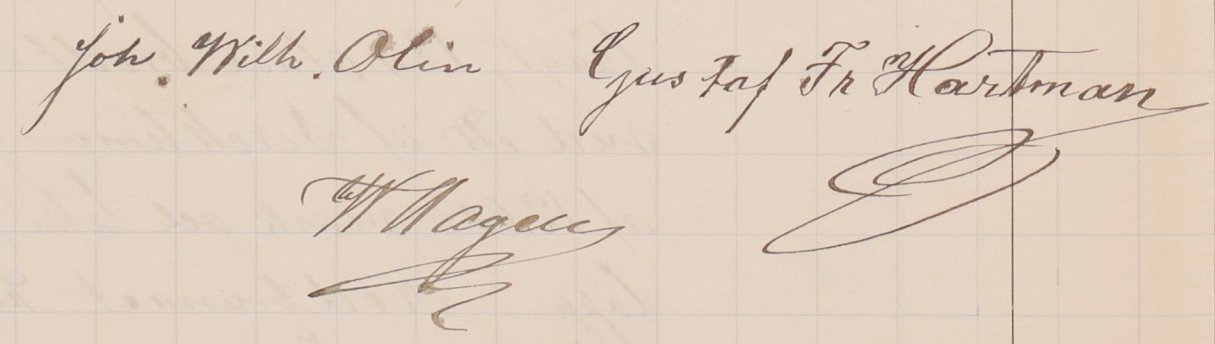 Joh. Wilh. Olin Gustaf Fr Hartman
W Hagen